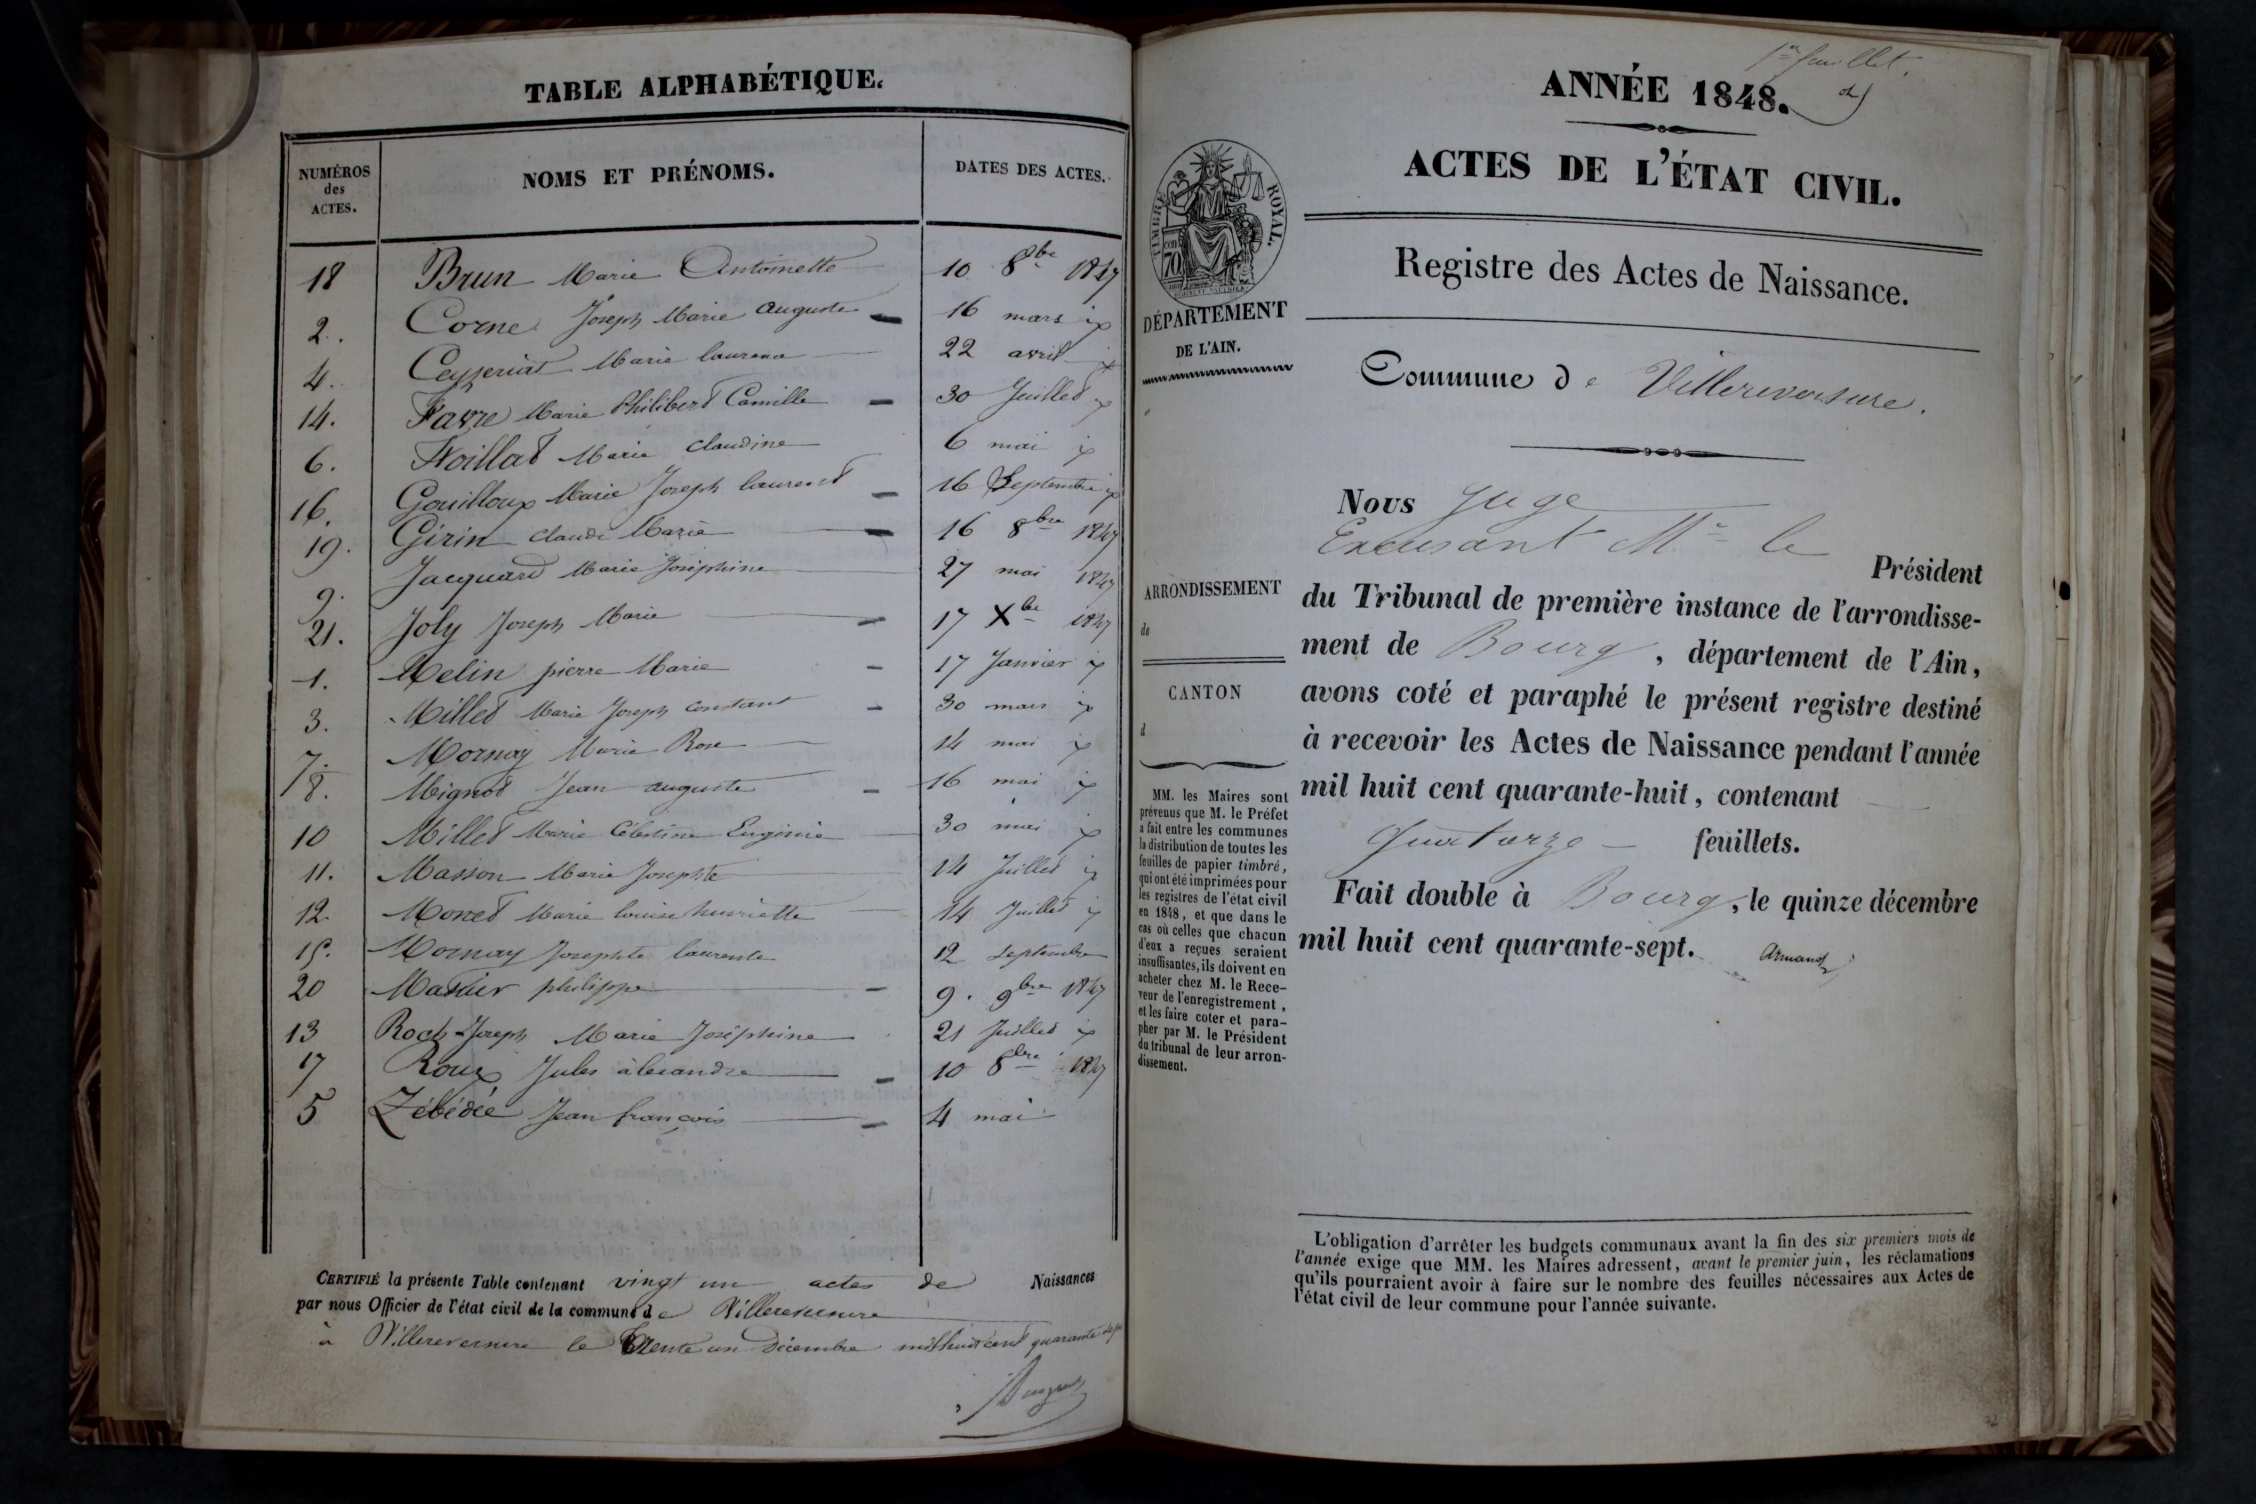 TABLE ALPHABÉTIQUE.
NUMÉROS des ACTES. NOMS ET PRÉNOMS. DATES DES ACTES.
18 Brun Marie Antoinette 10 8bre 1847
2. Corne Joseph Marie auguste 16 mars
4. Ceyzeriat Marie 22 avril
14. Favre Marie Philibert Camille 30 Juillet
6. Foillat Marie Claudine 6 mai
16. Gouilloux Marie Joseph laurent 16 Septembre
19. Girin claude Marie 16 8bre 1847
9. Jacquard Marie Joséphine 27 mai 1847
21. Joly Joseph Marie 17 Xbre 1847
1. Melin pierre Marie 17 Janvier
3. Millet Marie Joseph constant 30 mars
7. Mornay Marie Rose 14 mai
8. Mignot Jean auguste 16 mai
10 Millet Marie Célestine Eugénie 30 mai
11. Masson Marie Josephte 14 Juillet
12. Monet Marie louise henriette 14 Juillet
15. Mornay Josephte laurente 12 septembre
20 philippe 9. 9bre 1847
13 Roch Joseph Marie Joséphine 21 Juillet
17 Roux Jules alexandre 10 8bre 1847
5 Zébédée Jean françois 4 mai
CERTIFIÉ la présente Table contenant vingt un actes de Naissances
par nous Officier de l'état civil de la commune de Villereversure
à Villereversure le Trente un Décembre mil huit cent quarante sept
1er feuillet.
ANNÉE 1848.
ACTES DE L'ÉTAT CIVIL.
TIMBRE ROYAL.
70
Registre des Actes de Naissance.
DÉPARTEMENT
DE L'AIN.
Commune de Villereversure.
Nous Juge
Excusant Mr le
Président
ARRONDISSEMENT
de
CANTON
d
du Tribunal de première instance de l'arrondisse-
ment de Bourg, département de l'Ain,
avons coté et paraphé le présent registre destiné
à recevoir les Actes de Naissance pendant l'année
mil huit cent quarante-huit, contenant
quatorze feuillets.
Fait double à Bourg, le quinze décembre
mil huit cent quarante-sept.
Armand
MM. les Maires sont
prévenus que M. le Préfet
a fait entre les communes
la distribution de toutes les
feuilles de papier timbré,
qui ont été imprimées pour
les registres de l'état civil
en 1848, et que dans le
cas où celles que chacun
d'eux a reçues seraient
insuffisantes, ils doivent en
acheter chez M. le Rece-
veur de l'enregistrement,
et les faire coter et para-
pher par M. le Président
du tribunal de leur arron-
dissement.
L'obligation d'arrêter les budgets communaux avant la fin des six premiers mois de
l'année exige que MM. les Maires adressent, avant le premier juin, les réclamations
qu'ils pourraient avoir à faire sur le nombre des feuilles nécessaires aux Actes de
l'état civil de leur commune pour l'année suivante.